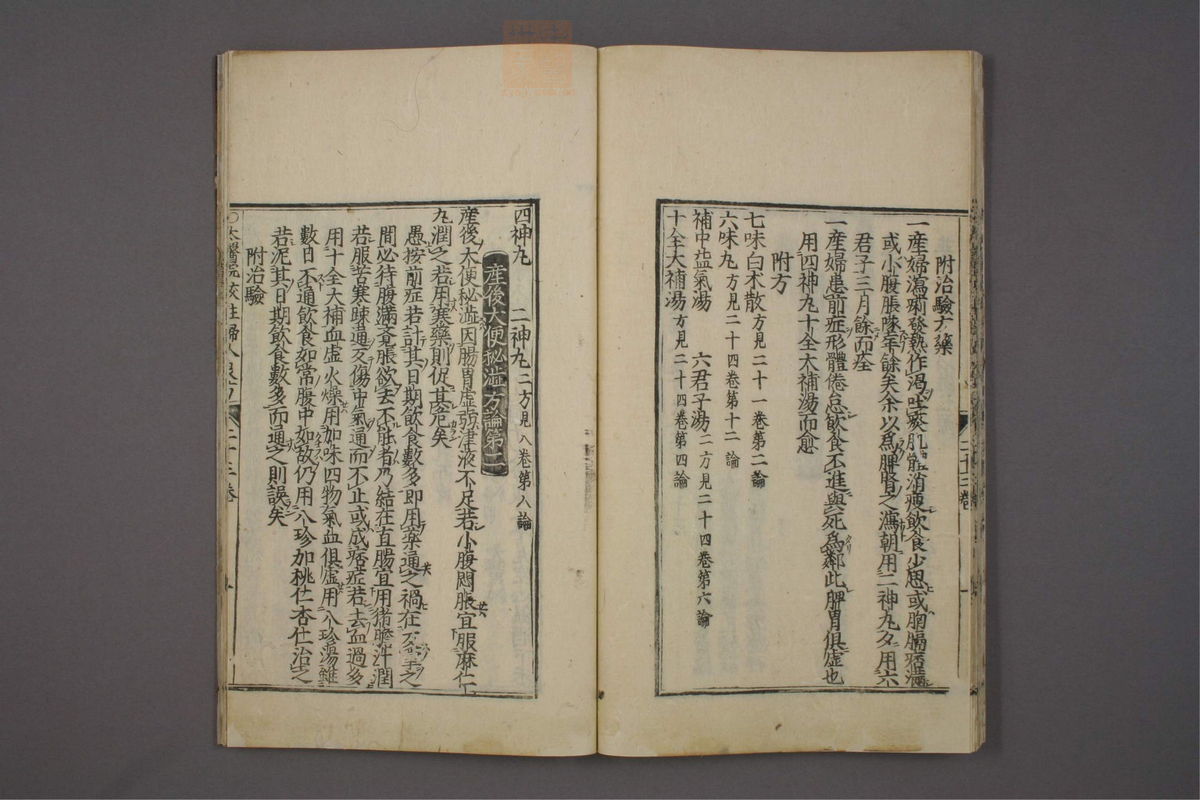 附治驗方藥
一産婦瀉痢發熱作渇吐痰肌體消瘦飲食少思或胸膈痞滿
或小腹脹墜年餘矣余以爲脾腎之瀉朝用二神丸夕用六
君子三月餘而痊
一産婦患前症形體倦怠飲食不進與死爲鄰此脾胃俱虚也
用四神丸十全大補湯而愈
附方
七味白术散方見二十一卷第二論
六味丸方見二十四卷第十二論
補中益氣湯 六君子湯二方見二十四卷第六論
十全大補湯方見二十四卷第四論
二十三卷
四神丸 二神丸二方見八卷第八論
産後大便秘澁方論第二
産後大便秘澁因腸胃虚弱津液不足若小腹悶脹宜服麻仁
丸潤之若用寒藥則促其危矣
愚按前症若計其日期飲食數多即用藥通之禍在反掌之
間必待腹滿覺脹欲去不能者乃結在直腸宜用猪膽汁潤
若服苦寒疎通反傷中氣通而不止或成痞症若去血過多
用十全大補血虚火燥用加味四物氣血俱虚用八珍湯雖
數日不通飲食如常腹中如故仍用八珍加桃仁杏仁治之
若泥其日期飲食數多而通之則誤矣
附治驗
○太醫院校註婦人良方 二十三卷